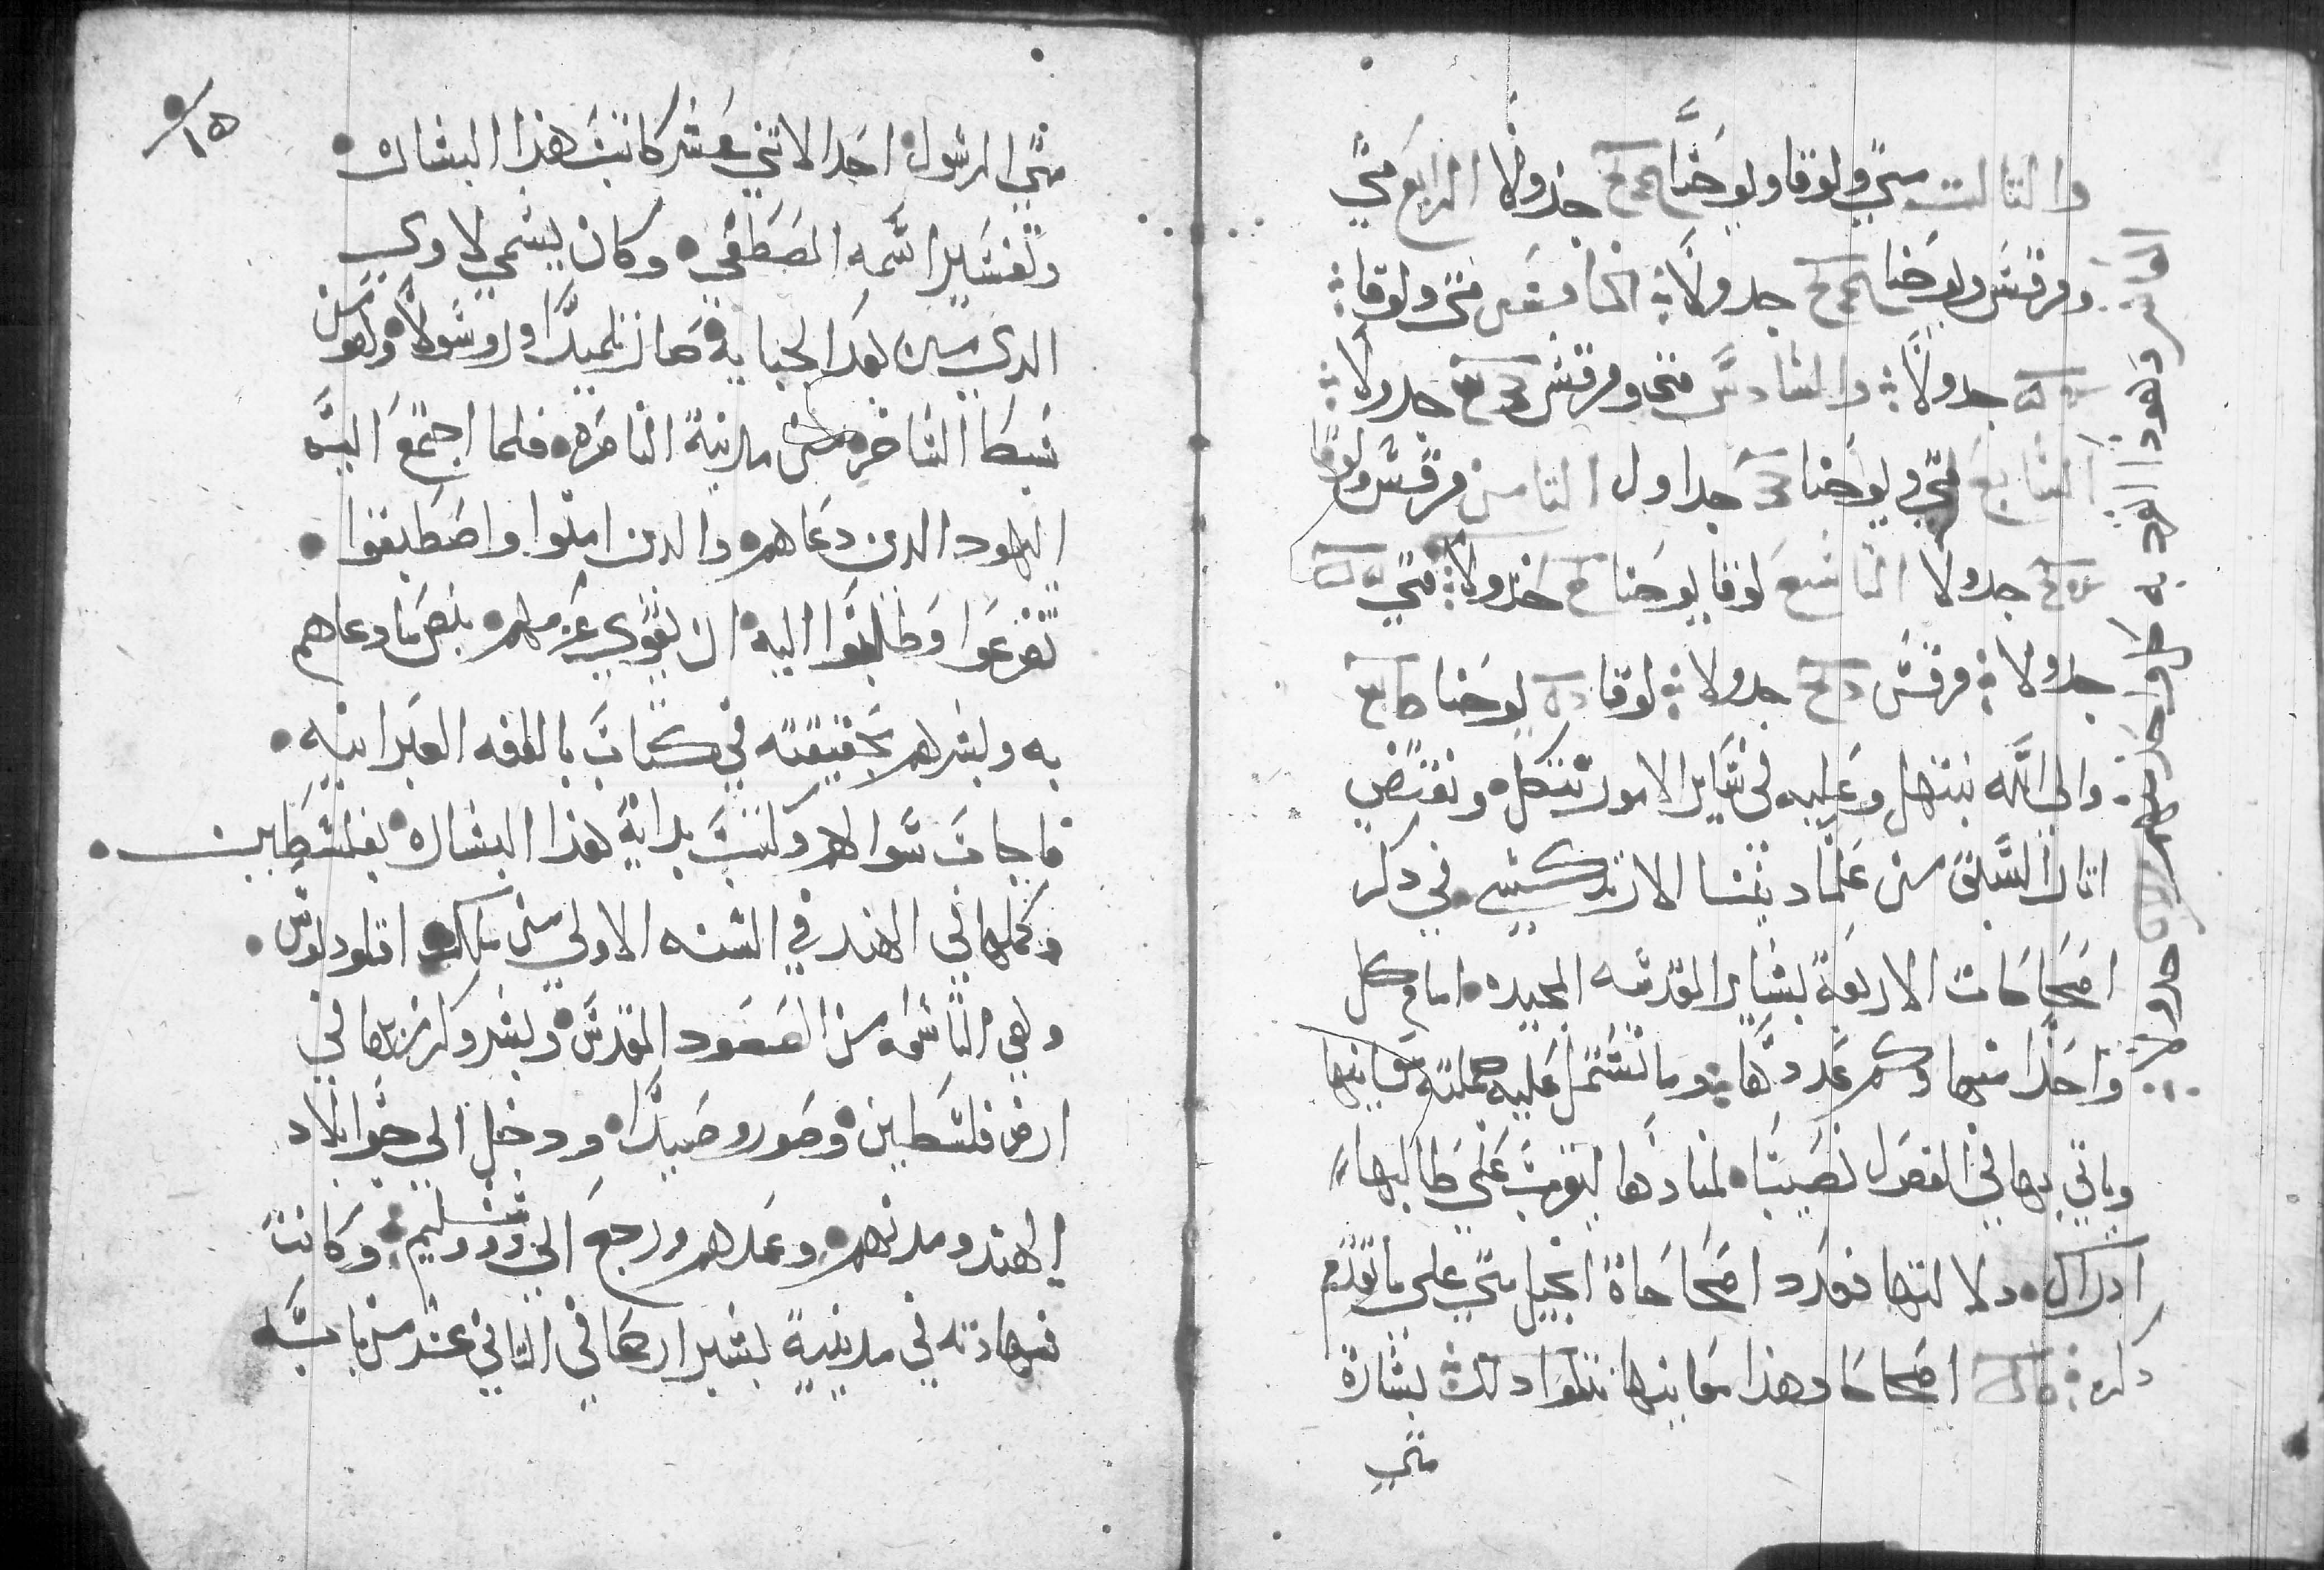 والتالت متي ولوقا ويوحنا جدولا الرابع متي
ومرقس ويوحنا جدولا الخامس متى ولوقا
جدولا والسادس متى ومرقس جدولا
السابع متي ويوحنا جداول التامن مرقس ولوقا
جدولا التاسع لوقا يوحنا جدولا متي
جدولا مرقس جدولا لوقا يوحنا
والي الله نبتهل وعليه في ساير الامور نتكل ونقتض
اتار السلف من علما ديننا الارتدكسي في دكر
اصحاحات الاربعة بشاير المقدسه المجيده امام كل
واحدا منها وكم عددها وما تشتمل عليه جملته معانيها
وياتي بها في الفصل لمنادها ليقرب على طالبها
ادراك دلالتها فعدد اصحاحاة انجيل متي علي ما تقدم
دكره اصحاحا وهذا معانيها نتلوا دلك بشارة
متي
العاشر وهو ما انفرد به كل واحد منهم جدولا
١٥
متي الرسول احد الاتني عشر كاتب هذا البشاره
وتفسير اسمه المصطفي وكان يسمي لاوي
الدي من بعد الجبايه صار تلميدا ورسولا وهو من
سبط من مدينة الناصره فلما اجتمع اليه
اليهود الدين دعاهم والدين امنوا واصطبغوا
تضرعوا وطلبوا اليه ان يقوي عزمهم بنص ما دعاهم
به وبشرهم بحقيقته في كتاب باللغه العبرانيه
فاجاب سوالهم وكتب بداية هذا البشاره بفلسطين
وكملها في الهند في السنه الاولي من ملك اقلوديوس
وهي التاسعه من الصعود المقدس وبشر وكرز بها في
ارض فلسطين وصور وصيدا ودخل الي جوا بلاد
الهند ومدنهم وعمدهم ورجع الي يروشليم وكانت
شهادته في مدينة بشير ارحما في التاني عشر من بابه